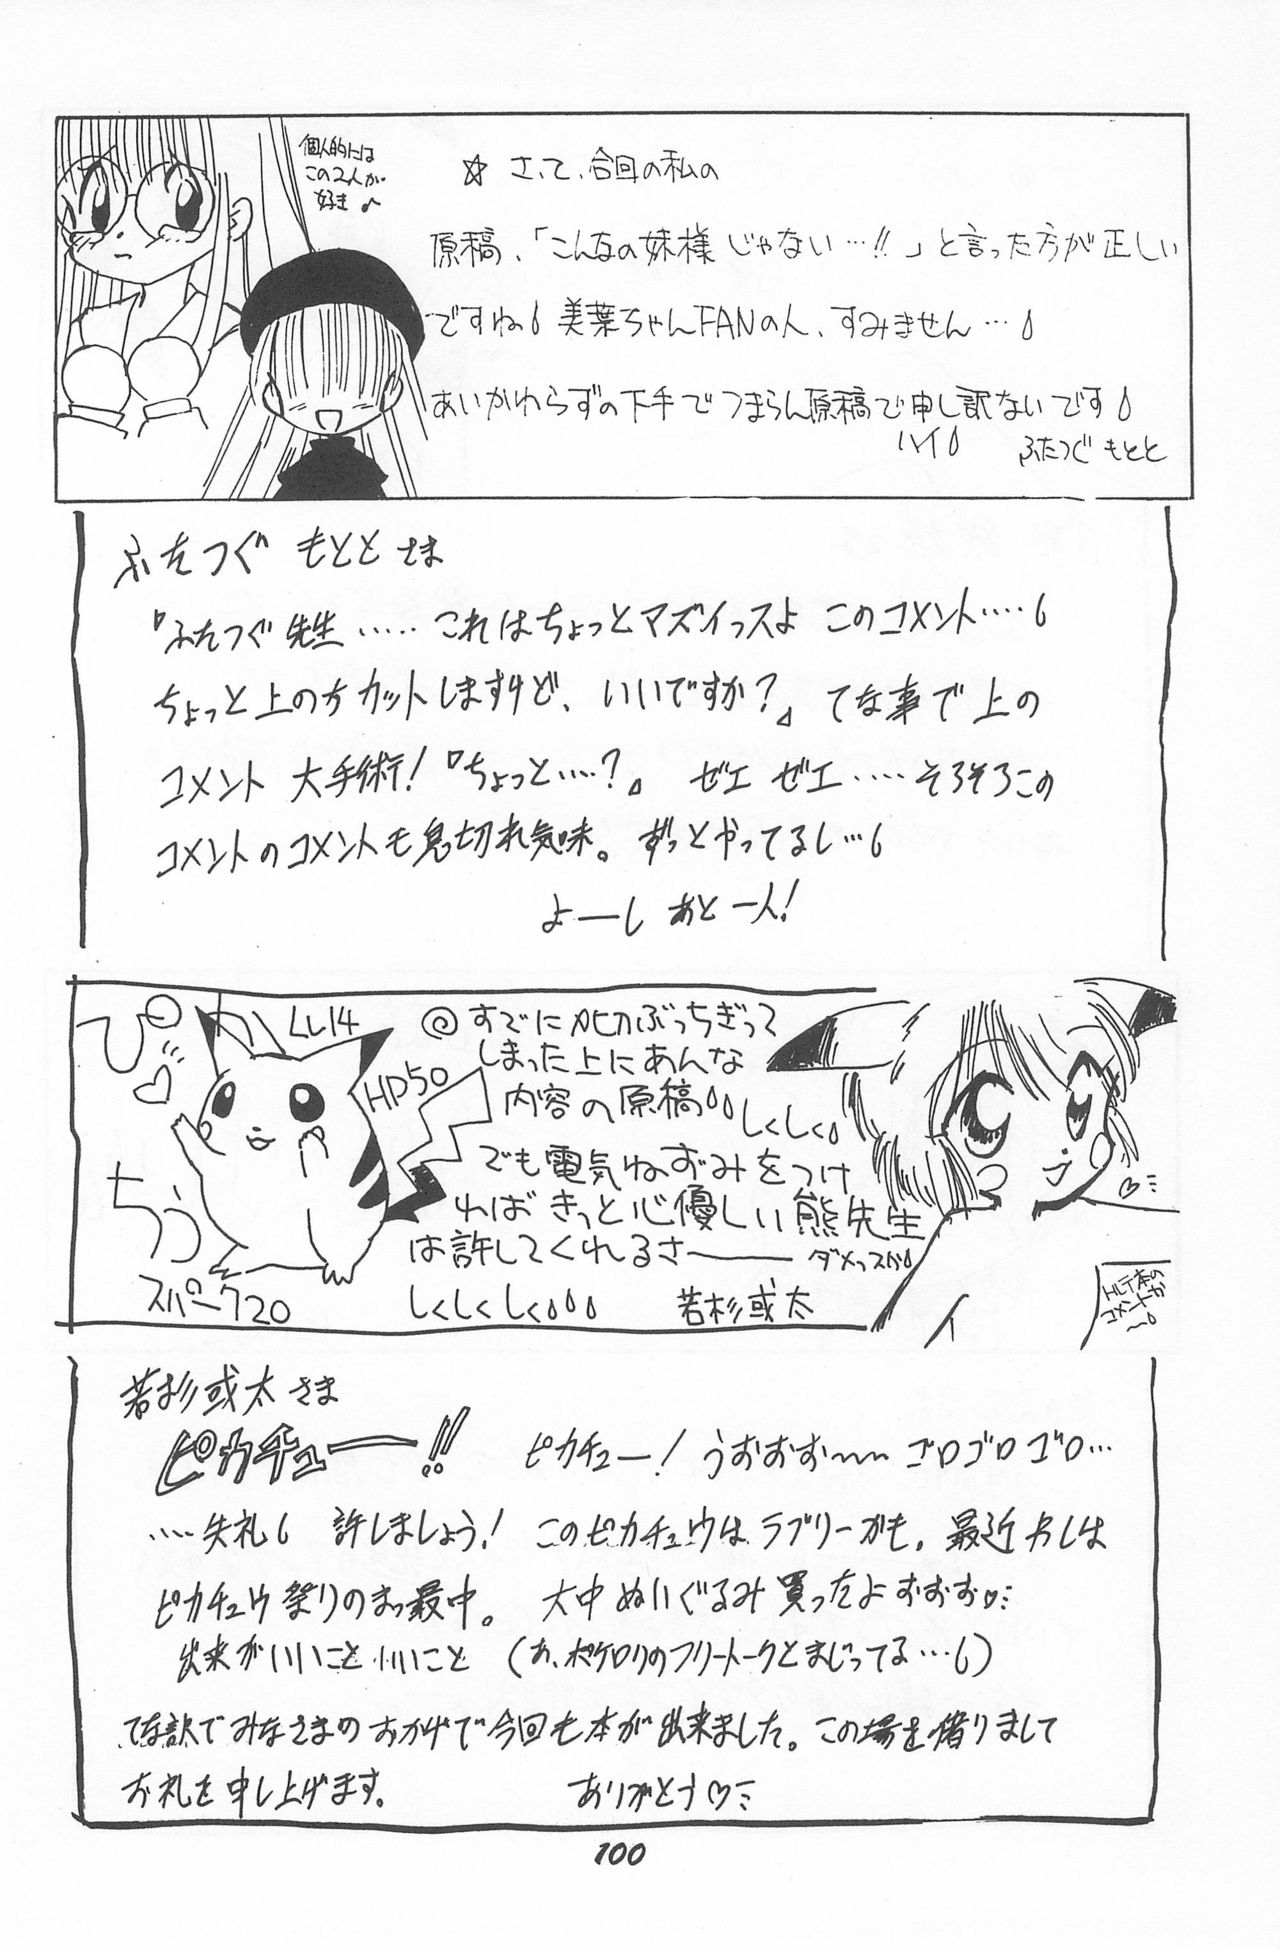 個人的には
この2人が
好き♪
☆ さ、て、今回の私の
原稿、「こんなの妹様じゃない…!!」と言った方が正しい
ですね 美葉ちゃんFANの人、すみません…
あいかわらずの下手でつまらん原稿で申し訳ないです
ハイ
ふたつぐ もとと
ふたつぐ もととさま
『ふたつぐ先生……これはちょっとマズイっスよ このコメント……
ちょっと上の方カットしますけど、いいですか?』てな事で上の
コメント 大手術!『ちょっと……?』 ゼエ ゼエ……そろそろこの
コメントのコメントも息切れ気味。ずっとやってるし…
よーし あと一人!
ぴか
ちう
LL14
HP50
スパーク20
@ すでに〆切ぶっちぎって
しまった上にあんな
内容の原稿
しくしく
でも電気ねずみをつけ
ればきっと心優しい熊先生
は許してくれるさ―― ダメっスか
しくしくしく
若杉或太
イ
コメントか
〜
若杉或太さま
ピカチュー!!
ピカチュー! うおおお〜〜ゴロゴロゴロ…
……失礼 許しましょう! このピカチュウはラブリーかも。最近わしは
ピカチュウ祭りのまっ最中。 大中ぬいぐるみ買ったよおおお♡
出来がいいこといいこと (あ、ポケロリのフリートークとまじってる…)
てな訳でみなさまのおかげで今回も本が出来ました。この場を借りまして
お礼を申し上げます。 ありがとう♡
100